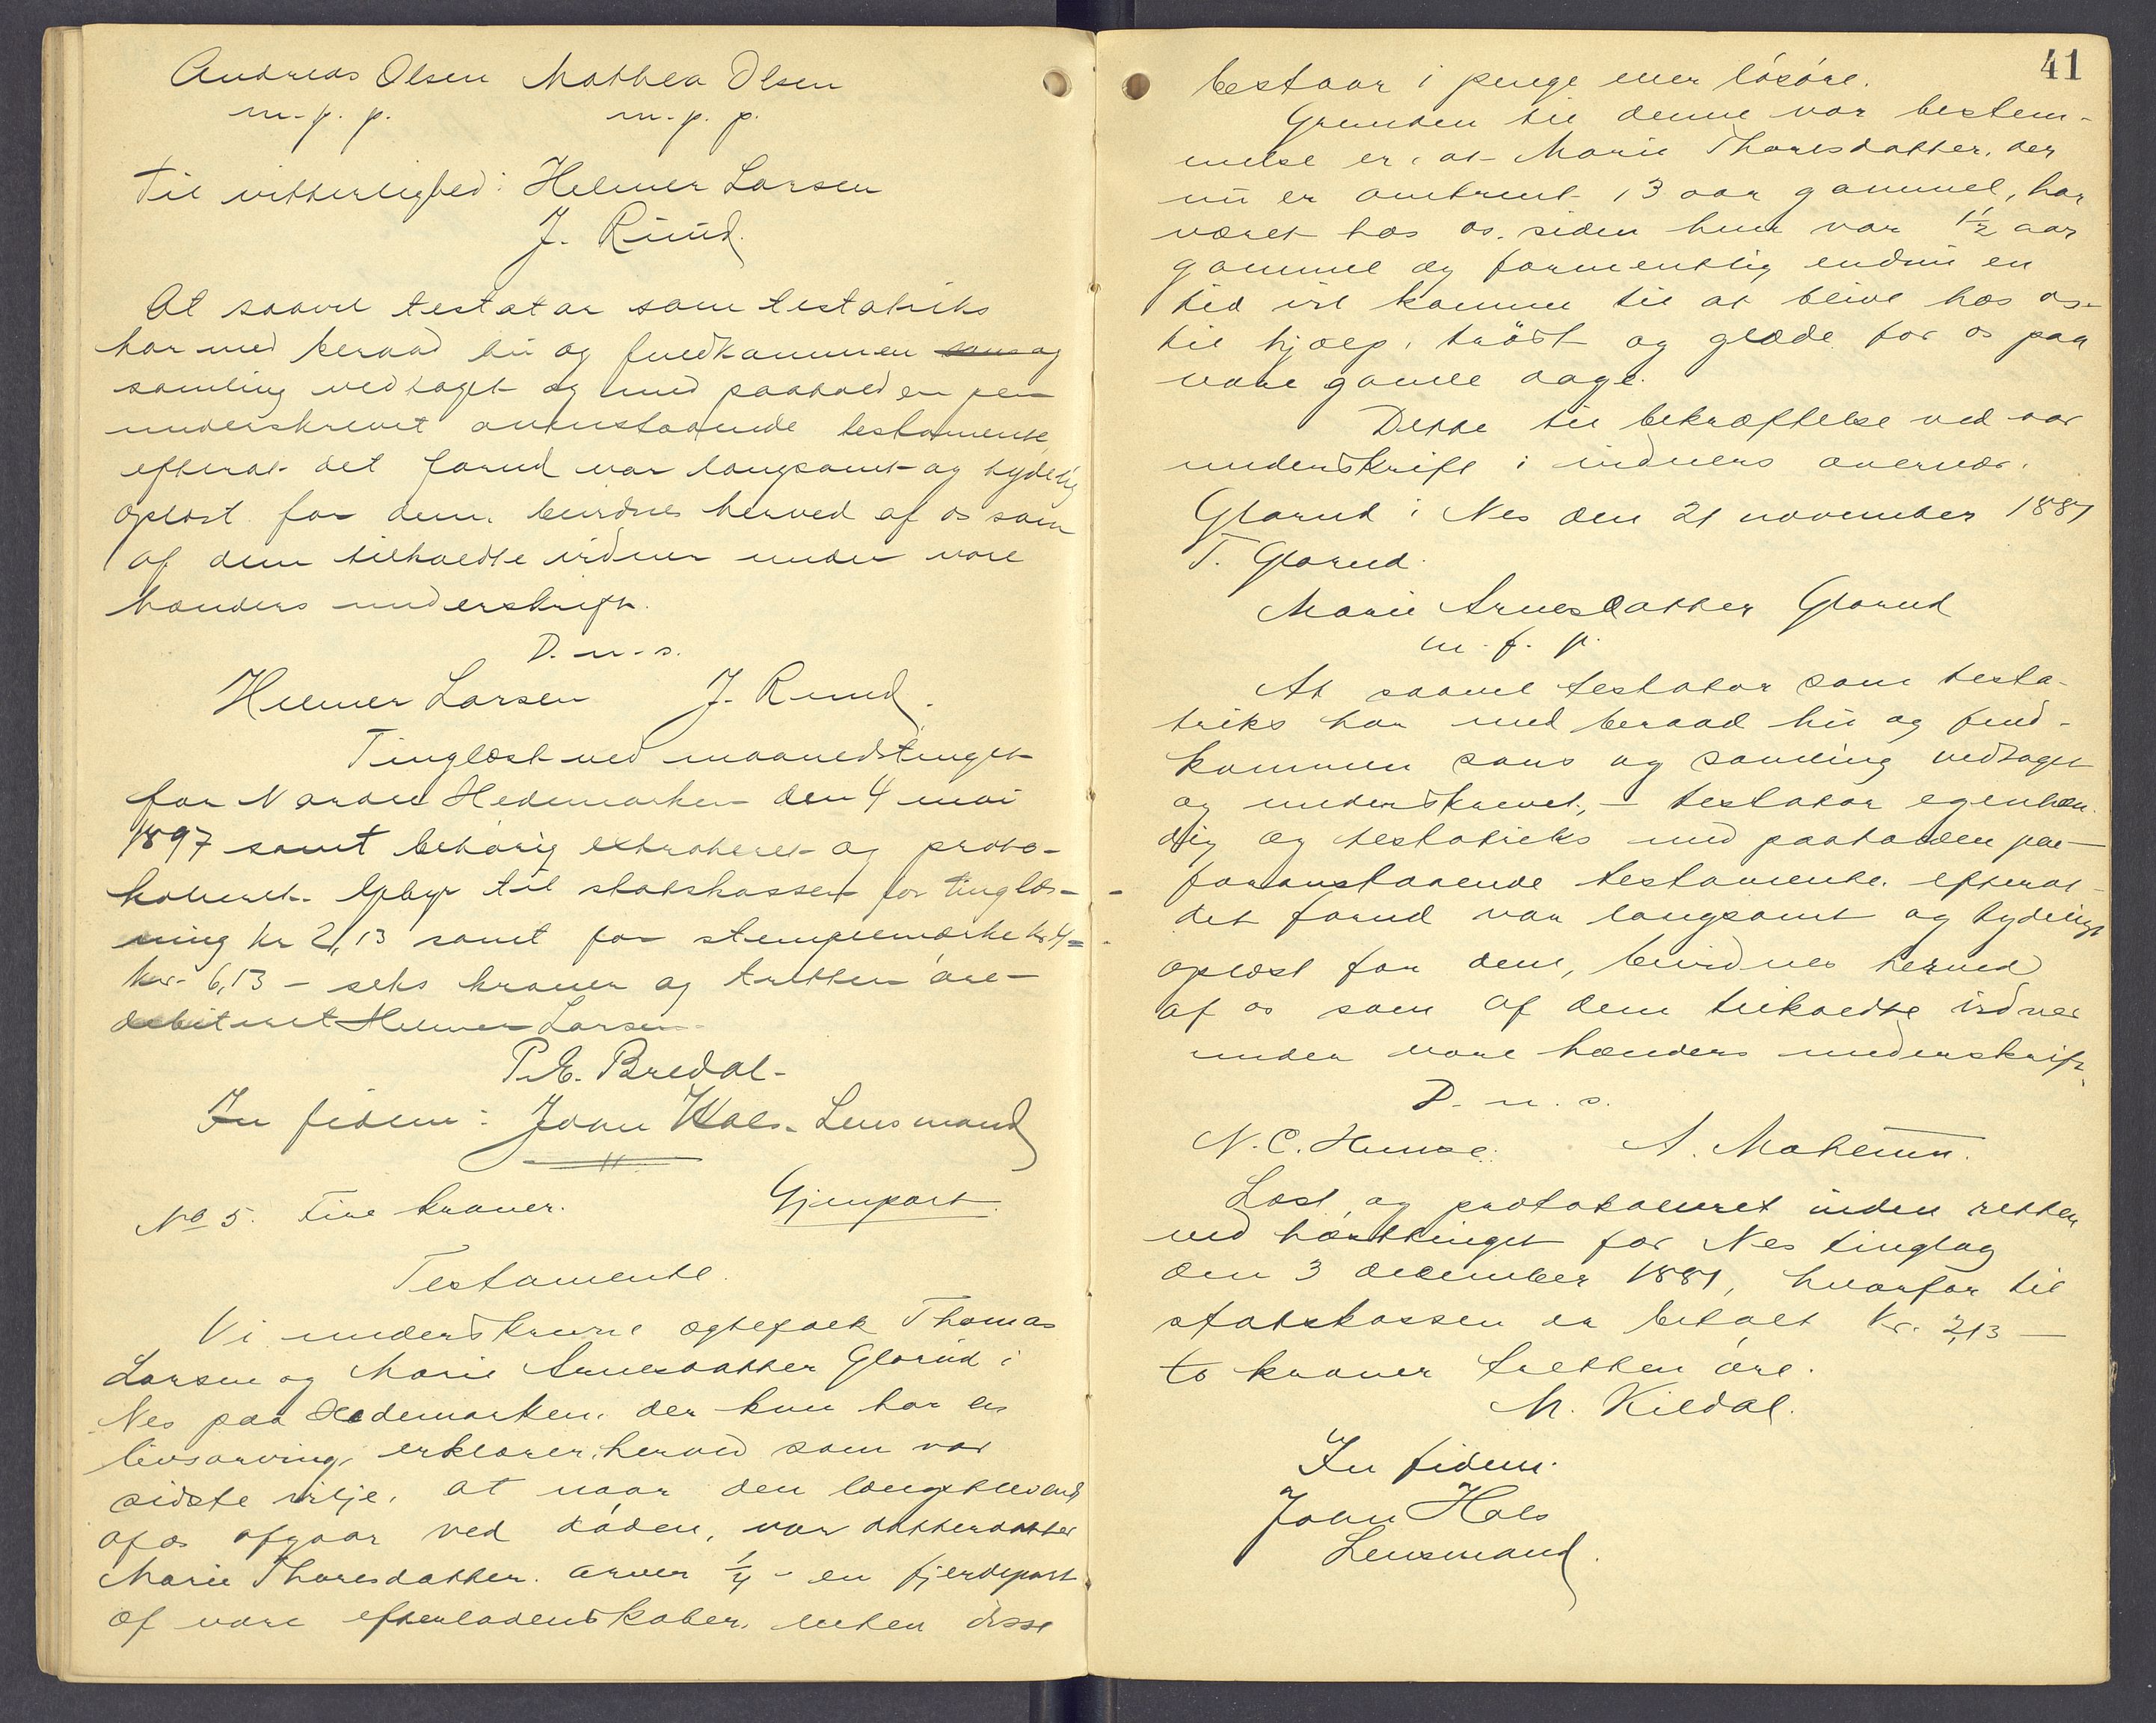 Andreas Olsen Mathea Olsen
m. p. p. m. p. p.
Til vitterlighed: Helmer Larsen
J. Ruud.
At saavel testator som testatriks
har med beraad hu og fuldkommen sans og
samling vedtaget og med paaholden pen
underskrevet ovenstaaende testamente,
efterat det forud var langsomt og tydelig
oplæst for dem, bevidnes herved af os som
af dem tilkaldte vidner under vore
hænders underskrift.
D. u. s.
Helmer Larsen J. Ruud.
Tinglæst ved maanedstinget
for Nordre Hedemarken den 4 mai
1897 samt behørig extraheret og proto-
kolleret. Gebyr til statskassen for tinglæs-
ning kr 2,13 samt for stempelmærke kr 4 =
kr. 6,13 – seks kroner og tretten øre –
debiteret Helmer Larsen.
P. E. Bredal.
In fidem: Johan Hals. Lensmand
No 5. Fire kroner. Gjenpart.
Testamente.
Vi underskrevne ægtefolk Thomas
Larsen og Marie Arnesdatter Glorud i
Nes paa Hedemarken, der kun har en
livsarving, erklærer herved som vor
sidste vilje, at naar den længstlevende
af os afgaar ved døden, vor datterdatter
Marie Thoresdatter arver 1/4 - en fjerdepart
af vore efterladenskaber, enten disse
41
bestaar i penge eller løsøre.
Grunden til denne vor bestem-
melse er, at Marie Thoresdatter, der
nu er omtrent 13 aar gammel, har
været hos os, siden hun var 1 1/2 aar
gammel og formentlig endnu en
tid vil komme til at blive hos os
til hjælp, trøst og glæde for os paa
vore gamle dage.
Dette til bekræftelse ved vor
underskrift i vidners overvær.
Glorud i Nes den 21 november 1881
T. Glorud.
Marie Arnesdatter Glorud
m. p. p.
At saavel testator som testa-
triks har med beraad hu og fuld-
kommen sans og samling vedtaget
og underskrevet, – testator egenhæn-
dig og testatriks med paaholden pen –
foranstaaende testamente, efterat
det forud var langsomt og tydeligt
oplæst for dem, bevidnes herved
af os som af dem tilkaldte vidner
under vore hænders underskrift.
D. u. s.
N. C. A. Mohemn.
Læst og protokolleret inden retten
ved høsttinget for Nes tinglag
den 3 december 1881, hvorfor til
statskassen er betalt kr. 2,13 –
to kroner tretten øre.
M. Kildal.
In fidem.
Johan Hals
Lensmand.